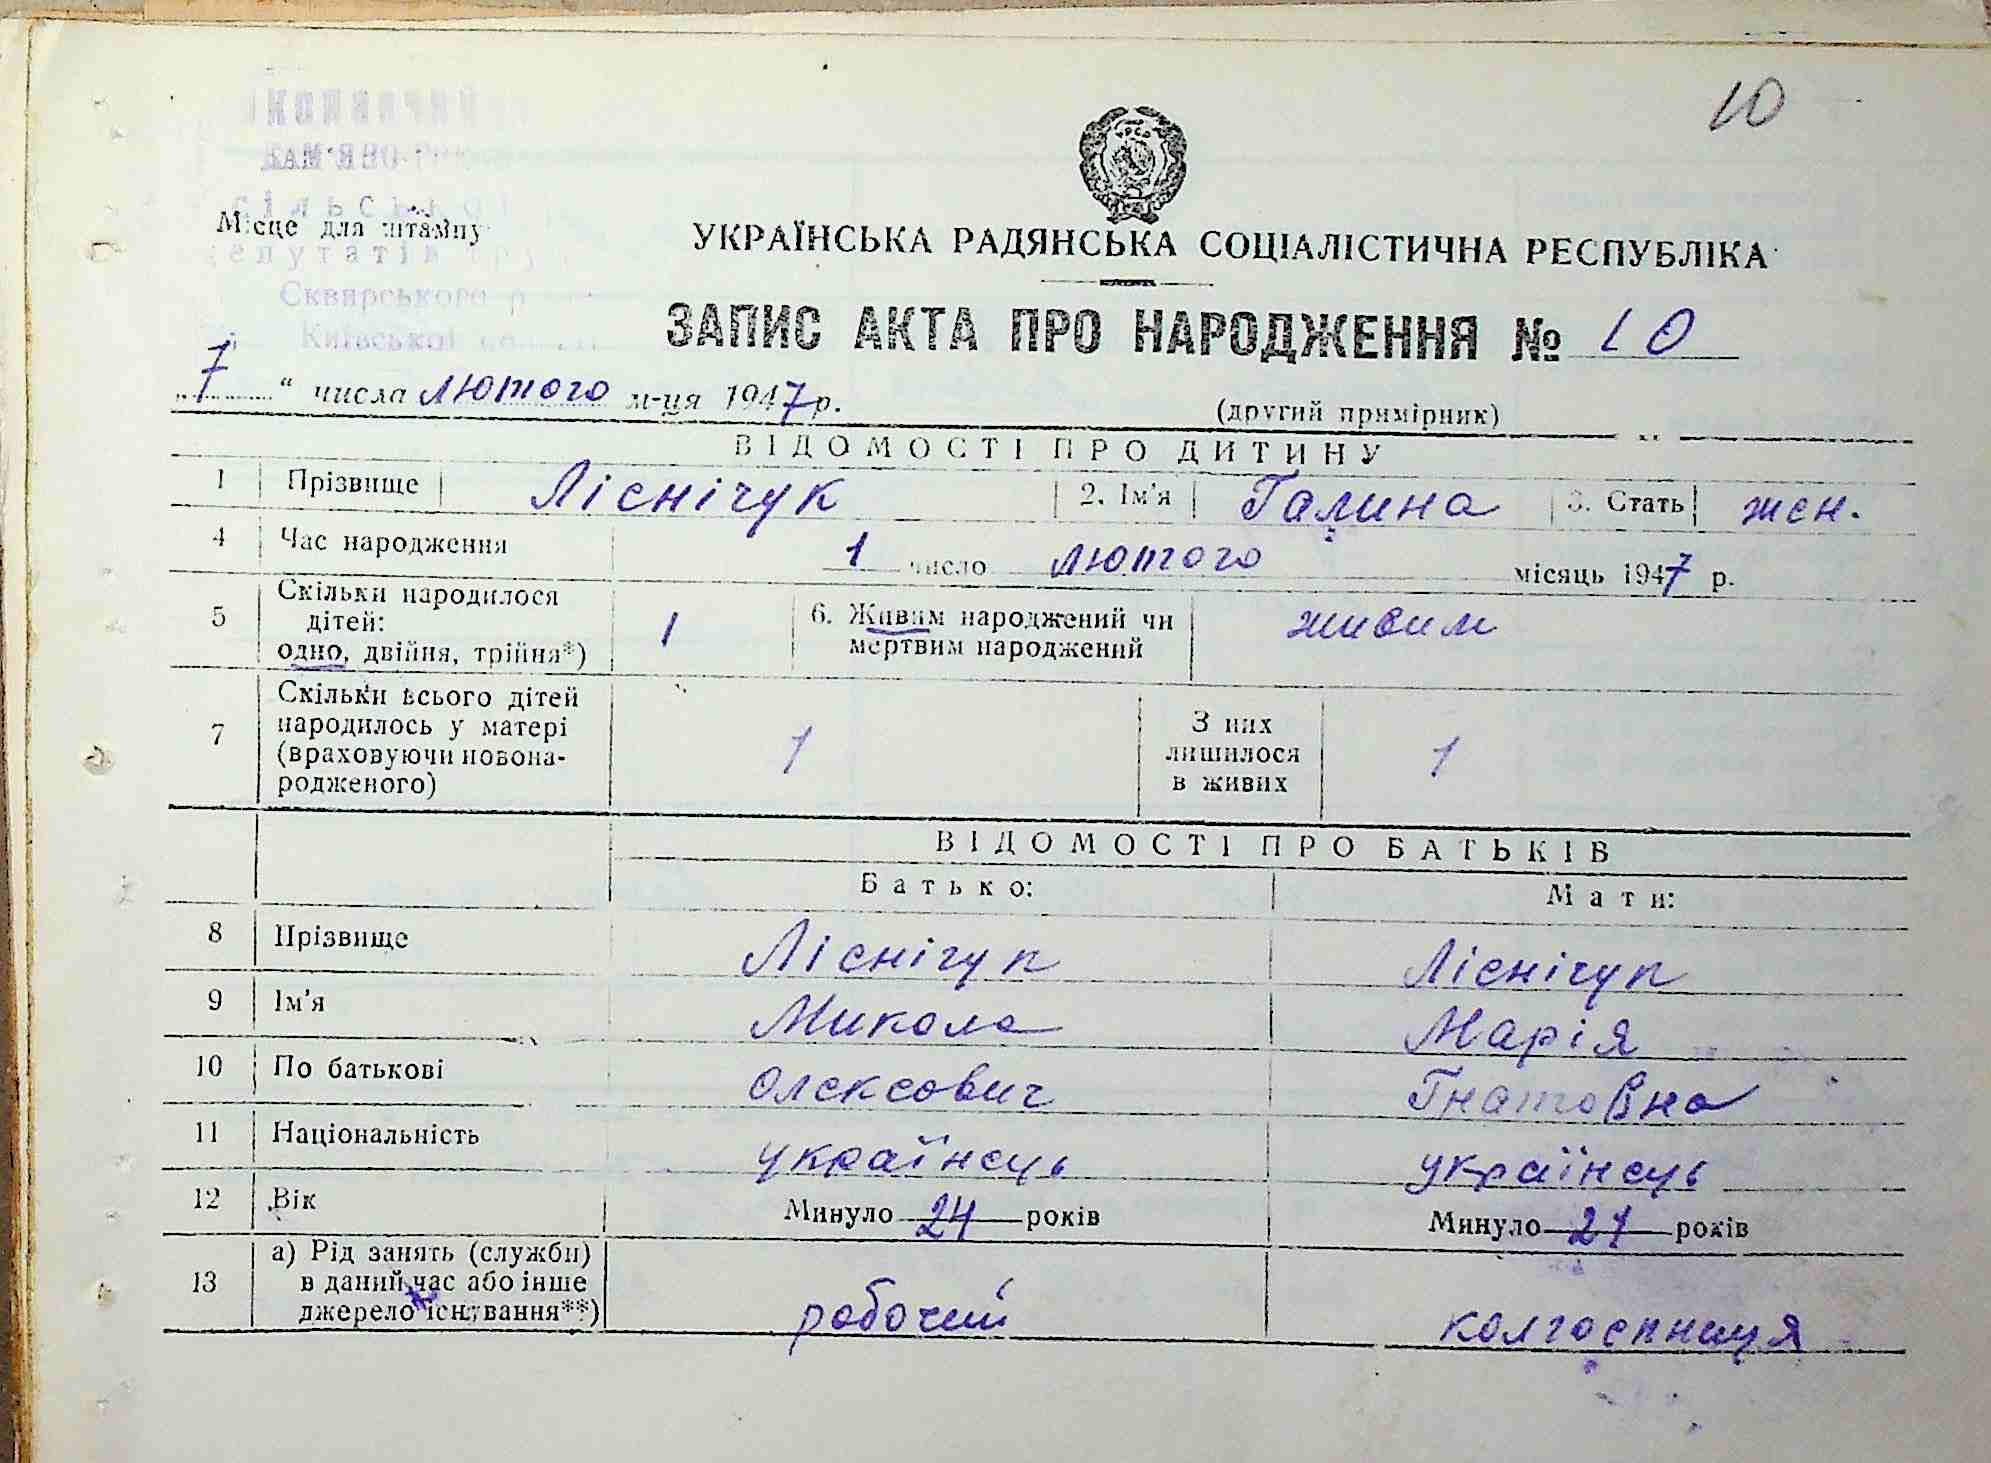 10
сільсько
Місце для штампу
депутатів тру
Сквирського р
Київської
УКРАЇНСЬКА РАДЯНСЬКА СОЦІАЛІСТИЧНА РЕСПУБЛІКА
ЗАПИС АКТА ПРО НАРОДЖЕННЯ № 10
„7“ числа лютого м-ця 1947 р.
(другий примірник)
ВІДОМОСТІ ПРО ДИТИНУ
1 Прізвище Ліснічук 2. Ім'я Галина 3. Стать жен.
4 Час народження 1 число лютого місяць 1947 р.
5 Скільки народилося дітей: одно, двійня, трійня*) 1 6. Живим народжений чи мертвим народжений живим
7 Скільки всього дітей народилось у матері (враховуючи новона-родженого) 1 З них лишилося в живих 1
ВІДОМОСТІ ПРО БАТЬКІВ
Батько: Мати:
8 Прізвище Ліснічук Ліснічук
9 Ім'я Микола Марія
10 По батькові Олексович Гнатовна
11 Національність українець українець
12 Вік Минуло 24 років Минуло 21 років
13 а) Рід занять (служби) в даний час або інше джерело існування**) робочий колгоспниця